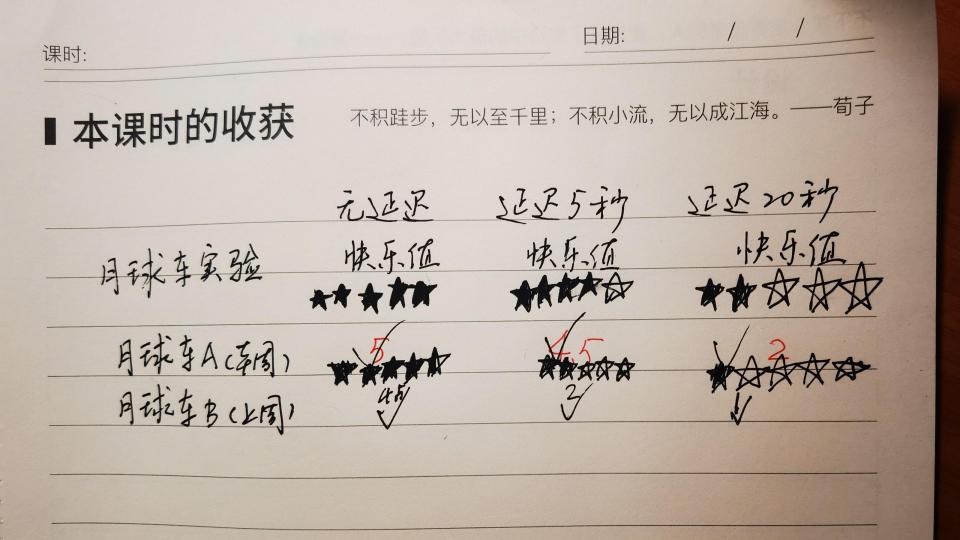 课时:
日期: / /
本课时的收获 不积跬步，无以至千里；不积小流，无以成江海。——荀子
无延迟 延迟5秒 延迟20秒
月球车实验 快乐值 快乐值 快乐值
★★★★★ ★★★★☆ ★★☆☆☆
月球车A（本周） 5 4.5 2
月球车B（上周） 3 1